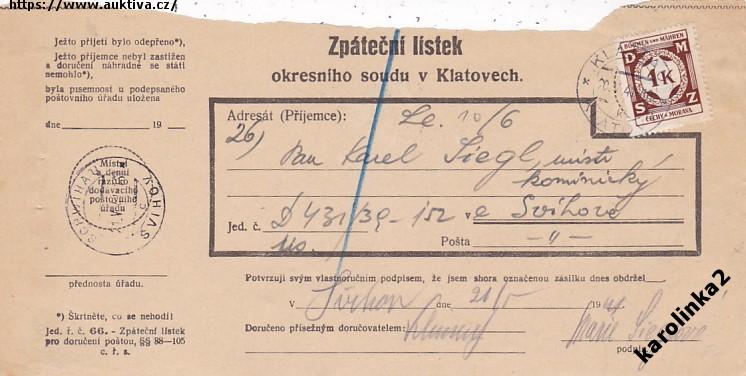 https://www.auktiva.cz/
Ježto přijetí bylo odepřeno*),
Ježto příjemce nebyl zastižen
a doručení náhradně se státi
nemohlo*),
byla písemnost u podepsaného
poštovního úřadu uložena
dne 19
Místní
a denní
razítko
dodávacího
poštovního
úřadu
přednosta úřadu.
*) Škrtněte, co se nehodí!
Jed. ř. č. 66. - Zpáteční lístek
pro doručení poštou, §§ 88—105
c. ř. s.
Zpáteční lístek
okresního soudu v Klatovech.
BÖHMEN UND MÄHREN
D M
1 K
S Z
ČECHY A MORAVA
Adresát (Příjemce): 10/6
26) Pan Karel Siegl, mistr
kominický
Jed. č. D 431/39-152 v Švihově
Pošta -„-
Potvrzuji svým vlastnoručním podpisem, že jsem shora označenou zásilku dnes obdržel
V Švihov dne 19
Doručeno přísežným doručovatelem: Marie
podpis
karolinka2